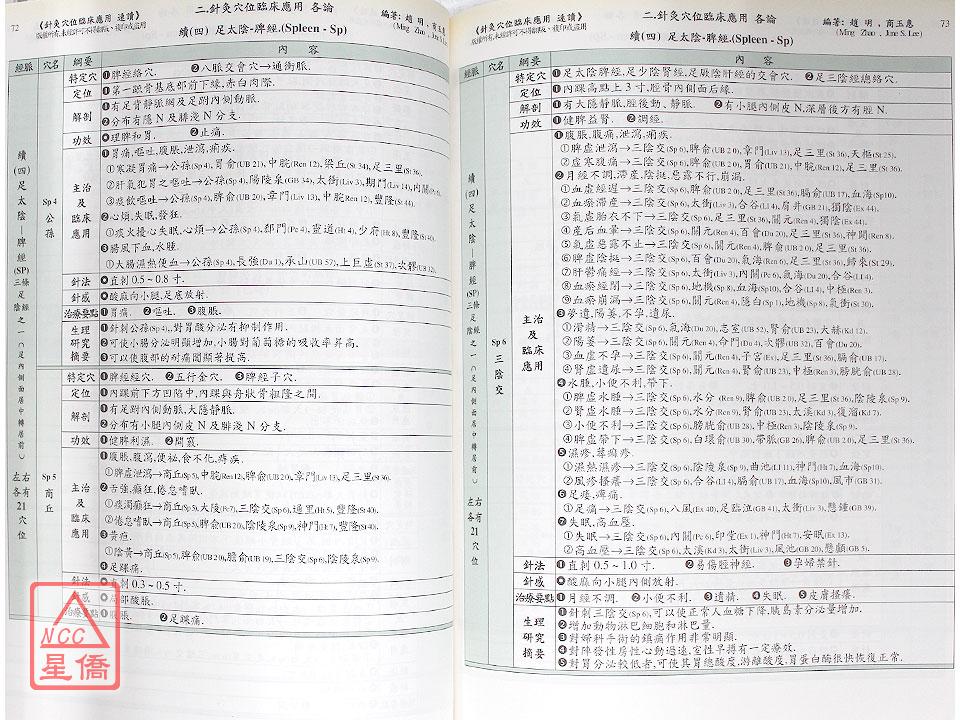 72
《針灸穴位臨床應用 速讀》
二.針灸穴位臨床應用 各論
編著: 趙 明, 商玉惠
續(四) 足太陰-脾經.(Spleen - Sp)
經脈 穴名 綱要 內 容
續(四)足太陰—脾經(SP)
左右各有21穴位
Sp 4 公孫
特定穴 ❶脾經絡穴. ❷八脈交會穴→通衝脈.
定位 ❶第一蹠骨基底部前下緣,赤白肉際.
解剖 ❶有足背靜脈網及足跗內側動脈.
❷分布有隱 N 及腓淺 N 分支.
功效 ❶理脾和胃. ❷止痛.
主治及臨床應用
❶胃痛,嘔吐,腹脹,泄瀉,痢疾.
①寒凝胃痛→公孫(Sp 4),胃俞(UB 21),中脘(Ren 12),梁丘(St 34),足三里(St 36).
②肝氣犯胃之嘔吐→公孫(Sp 4),陽陵泉(GB 34),太衝(Liv 3),期門(Liv 14),內關
③痰飲嘔吐→公孫(Sp 4),脾俞(UB 20),章門(Liv 13),中脘(Ren 12),豐隆(St 44).
❷心煩,失眠,發狂.
①痰火擾心失眠,心煩→公孫(Sp 4),郄門(Pc 4),靈道(Ht 4),少府(Ht 8),豐隆(St 40).
❸腸風下血,水腫.
①大腸濕熱便血→公孫(Sp 4),長強(Du 1),承山(UB 57),上巨虛(St 37),次髎(UB 32).
針法 直刺 0.5 ~ 0.8 寸.
針感 酸麻向小腿,足底放射.
治療要點 ❶胃痛. ❷嘔吐. ❸腹脹.
生理研究摘要
❶針刺公孫(Sp 4),對胃酸分泌有抑制作用.
❷可使小腸分泌明顯增加,小腸對葡萄糖的吸收率昇高.
❸可以使腹部的耐痛閾顯著提高.
Sp 5 商丘
特定穴 ❶脾經經穴. ❷五行金穴. ❸脾經子穴.
定位 ❶內踝前下方凹陷中,內踝與舟狀骨粗隆之間.
解剖 ❶有足跗內側動脈,大隱靜脈.
❷分布有小腿內側皮 N 及腓淺 N 分支.
功效 ❶健脾利濕. ❷開竅.
主治及臨床應用
❶腹脹,腹瀉,便祕,食不化,痔疾.
①脾虛泄瀉→商丘(Sp 5),中脘(Ren 12),脾俞(UB 20),章門(Liv 13),足三里(St 36).
❷舌強,癲狂,倦怠嗜臥.
①痰濁癲狂→商丘(Sp 5),大陵(Pc 7),三陰交(Sp 6),通里(Ht 5),豐隆(St 40).
②倦怠嗜臥→商丘(Sp 5),脾俞(UB 20),陰陵泉(Sp 9),神門(Ht 7),豐隆(St 40).
❸黃疸.
①陰黃→商丘(Sp 5),脾俞(UB 20),膽俞(UB 19),三陰交(Sp 6),陰陵泉(Sp 9).
❹足踝痛.
針法 直刺 0.3 ~ 0.5 寸.
針感 局部酸脹.
治療要點 ❶腹脹. ❷足踝痛.
NCC
星僑
《針灸穴位臨床應用 速讀》
二.針灸穴位臨床應用 各論
編著: 趙 明, 商玉惠
(Ming Zhao , June S. Lee)
73
續(四) 足太陰-脾經.(Spleen - Sp)
經脈 穴名 綱要 內 容
續(四)足太陰—脾經(SP)
左右各有21穴位
Sp 6 三陰交
特定穴 ❶足太陰脾經,足少陰腎經,足厥陰肝經的交會穴. ❷足三陰經總絡穴.
定位 ❶內踝高點上 3 寸,脛骨內側面后緣.
解剖 ❶有大隱靜脈,脛後動、靜脈. ❷有小腿內側皮 N,深層後方有脛 N.
功效 ❶健脾益腎. ❷調經.
主治及臨床應用
❶腹脹,腹痛,泄瀉,痢疾.
①脾虛泄瀉→三陰交(Sp 6),脾俞(UB 20),章門(Liv 13),足三里(St 36),天樞(St 25).
②虛寒腹痛→三陰交(Sp 6),脾俞(UB 20),胃俞(UB 21),中脘(Ren 12),足三里(St 36).
❷月經不調,滯產,陰挺,惡露不行,崩漏.
①血虛經遲→三陰交(Sp 6),脾俞(UB 20),足三里(St 36),膈俞(UB 17),血海(Sp10).
②血瘀滯產→三陰交(Sp 6),太衝(Liv 3),合谷(LI 4),肩井(GB 21),獨陰(Ex 44).
③氣虛胎衣不下→三陰交(Sp 6),足三里(St 36),關元(Ren 4),獨陰(Ex 44).
④產后血暈→三陰交(Sp 6),關元(Ren 4),百會(Du 20),足三里(St 36),神闕(Ren 8).
⑤氣虛惡露不止→三陰交(Sp 6),關元(Ren 4),脾俞(UB 20),足三里(St 36).
⑥脾虛陰挺→三陰交(Sp 6),百會(Du 20),氣海(Ren 6),足三里(St 36),歸來(St 29).
⑦肝鬱痛經→三陰交(Sp 6),太衝(Liv 3),內關(Pc 6),氣海(Du 20),合谷(LI 4).
⑧血瘀經閉→三陰交(Sp 6),地機(Sp 8),血海(Sp10),合谷(LI 4),中極(Ren 3).
⑨血瘀崩漏→三陰交(Sp 6),關元(Ren 4),隱白(Sp 1),地機(Sp 8),氣衝(St 30).
❸夢遺,陽萎,不孕,遺尿.
①滑精→三陰交(Sp 6),氣海(Du 20),志室(UB 52),腎俞(UB 23),大赫(Kd 12).
②陽萎→三陰交(Sp 6),關元(Ren 4),命門(Du 4),次髎(UB 32),百會(Du 20).
③血虛不孕→三陰交(Sp 6),關元(Ren 4),子宮(Ex),足三里(St 36),膈俞(UB 17).
④腎虛遺尿→三陰交(Sp 6),關元(Ren 4),腎俞(UB 23),中極(Ren 3),膀胱俞(UB 28).
❹水腫,小便不利,帶下.
①脾虛水腫→三陰交(Sp 6),水分 (Ren 9),脾俞(UB 20),足三里(St 36),陰陵泉(Sp 9).
②腎虛水腫→三陰交(Sp 6),水分(Ren 9),腎俞(UB 23),太溪(Kd 3),復溜(Kd 7).
③小便不利→三陰交(Sp 6),膀胱俞(UB 28),中極(Ren 3),陰陵泉(Sp 9).
④脾虛帶下→三陰交(Sp 6),白環俞(UB 30),帶脈(GB 26),脾俞(UB 20),足三里(St 36).
❺濕疹,蕁痲疹.
①濕熱濕疹→三陰交(Sp 6),陰陵泉(Sp 9),曲池(LI 11),神門(Ht 7),血海(Sp10)
②風疹搔癢→三陰交(Sp 6),合谷(LI 4),膈俞(UB 17),血海(Sp10),風市(GB 31).
❻足痿,痺痛.
①足痛→三陰交(Sp 6),八風(Ex 40),足臨泣(GB 41),太衝(Liv 3),懸鐘(GB 39).
❼失眠,高血壓.
①失眠→三陰交(Sp 6),內關(Pc 6),印堂(Ex 1),神門(Ht 7),安眠(Ex 13).
②高血壓→三陰交(Sp 6),太溪(Kd 3),太衝(Liv 3),風池(GB 20),懸顱(GB 5).
針法 ❶直刺 0.5 ~ 1.0 寸. ❷易傷脛神經. ❸孕婦禁針.
針感 酸麻向小腿內側放射.
治療要點 ❶月經不調. ❷小便不利. ❸遺精. ❹失眠. ❺皮膚搔癢.
生理研究摘要
❶針刺三陰交(Sp 6),可以使正常人血糖下降,胰島素分泌量增加.
❷增加動物淋巴細胞和淋巴量.
❸對婦科手術的鎮痛作用非常明顯.
❹對陣發性房性心動過速,室性早搏有一定療效.
❺對胃分泌較低者,可使其胃總酸度,游離酸度,胃蛋白酶很快恢復正常.